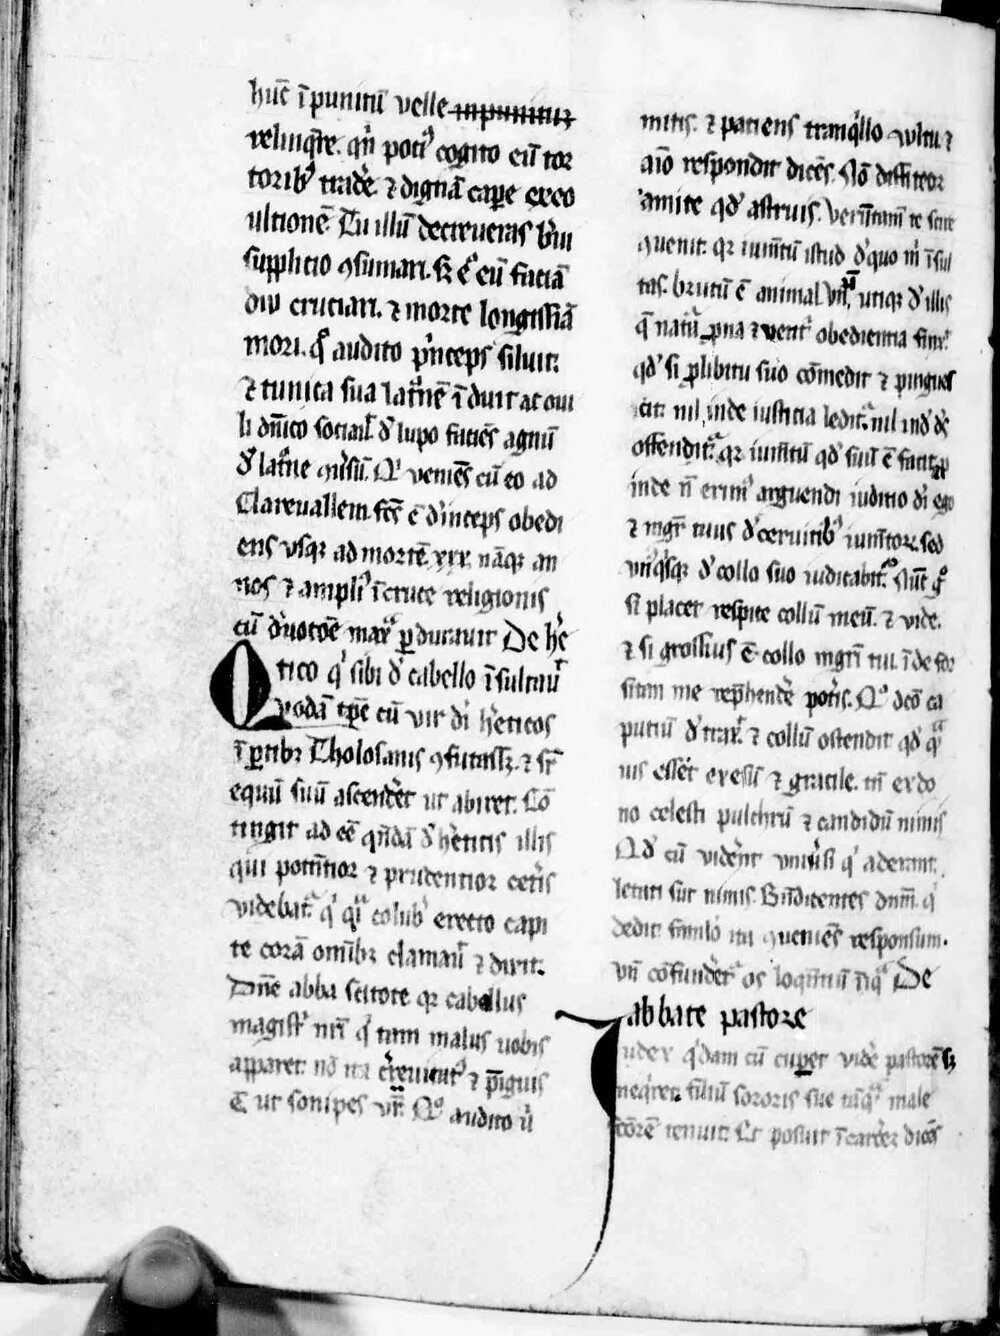 hūc īpunitū velle inpunituȝ
relinq̄re. qn̄ poti⁹ cogito eū tor
torib⁹ trad̓e. ⁊ dignā cap̲e ex eo
ultionē. Tu illū decreueras b̓ui
supplicio ꝯsumari. sȝ eḡ eū faciā
diu cruciari. ⁊ morte longissīa
mori. q° audito p̓nceps siluit.
⁊ tunica sua latr̓nē īduit ac oui
li dn̄ico sociauit d̓ lupo faciēs agnū
d̓ latr̓ne ꝯu̓sū. Qͥ veniēs cū eo ad
Clareuallem. fc̄s ē d̓inceps obedi
ens vsqȝ ad mortē. xxx. nāqȝ an
nos ⁊ ampli⁹ ī cruce religionis
cū d̓uotōe maxͣ ꝑdurauit De h̓e
tico qͥ sibi d̓ cabello īsultauͭ
Quodā tp̄e cū vir dī h̓eticos
ī ꝑtibȝ Tholosanis ꝯfutassȝ. ⁊ sr̄
equū suū ascend̓et ut abiret. Cō
tingit ad eē qn̄dā d̓ h̓eticis illis
qui potn̄tior ⁊ prudentior cet̓is
videbat᷑. qͥ qͣi colub̓ erecto capi
te corā omībȝ clamauͭ ⁊ dixit.
Dn̄e abba scitote qȝ cabellus
magistͥ nr̄i qͥ tam malus uobis
apparet. nō ita c̓reuicat⁹ ⁊ p̄iguis
ē ut sonipes vr̄. Qͦ audito uͥ
mitis. ⁊ patiens tranqͥllo vultu ⁊
aīo respondit dicēs. Nō diffiteor
amice qd̓ astruis. Verūtam̄ te scire
ꝯuenit. qȝ iumtū istud d̓ quo m̄ īsul
tas. brutū ē animal. vn̄, utiqȝ d̓ illis
q̄ natͣ ꝓna ⁊ ventͥ obedientia finx̓.
qd̓ si ꝓ libitu suo comedit ⁊ pingues
cit. nil, inde iusticia ledit᷑. nil ind̓ dꝰ
offendit᷑. qȝ iumtū qd̓ suū ē facit. ꝓ
inde n̄ erimꝰ arguendi iuditio dī ego
⁊ mgr̄ tuus d̓ ceruicib⁹ iumtoꝝ. sed
vnꝰqͥsqȝ d̓ collo suo iudicabit᷑. Nūc gͦ
si placet respice collū meū. ⁊ vide.
⁊ si grossius ē collo mgr̄i tui. īde for
sitam me rep̄hend̓e pot̓is. Qͦ dc̄o ca
putiū d̓ traxͭ. ⁊ collū ostendit qd̓ qͣ
uis ess̓et exesū ⁊ gracile. tn̄ ex do
no celesti pulchrū ⁊ candidū nimis
Qd̓ cū vid̓ent vniu̓si qͥ aderant.
letati sūt nimis. Bn̄dicentes dnm̄. qͥ
dedit famlo ita ꝯueniēs responsum.
vn̄ confund̓et᷑ os loqn̄tiū īiqͣ De
abbate pastore
Iudex qͥdam cū cuperet vid̓e pastorē sȝ
neqͥret. filiū sororis sue tāqͣ male
fcōrē tenuit. Et posuit ī carc̓e dicēs